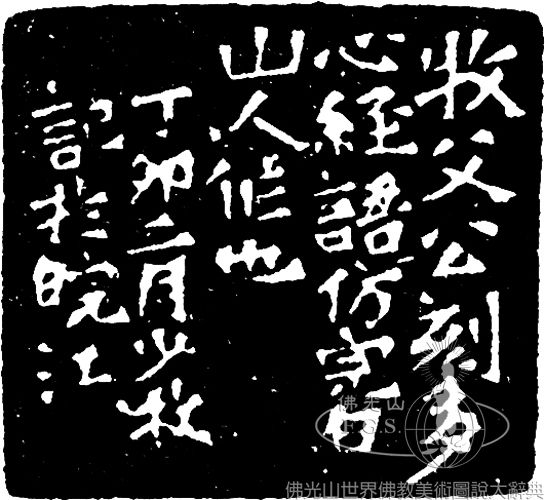 牧父公刻多
心經語仿完白
山人作也
丁卯二月少牧
記於皖江
佛光山
F.G.S.
佛光山世界佛教美術圖說大辭典